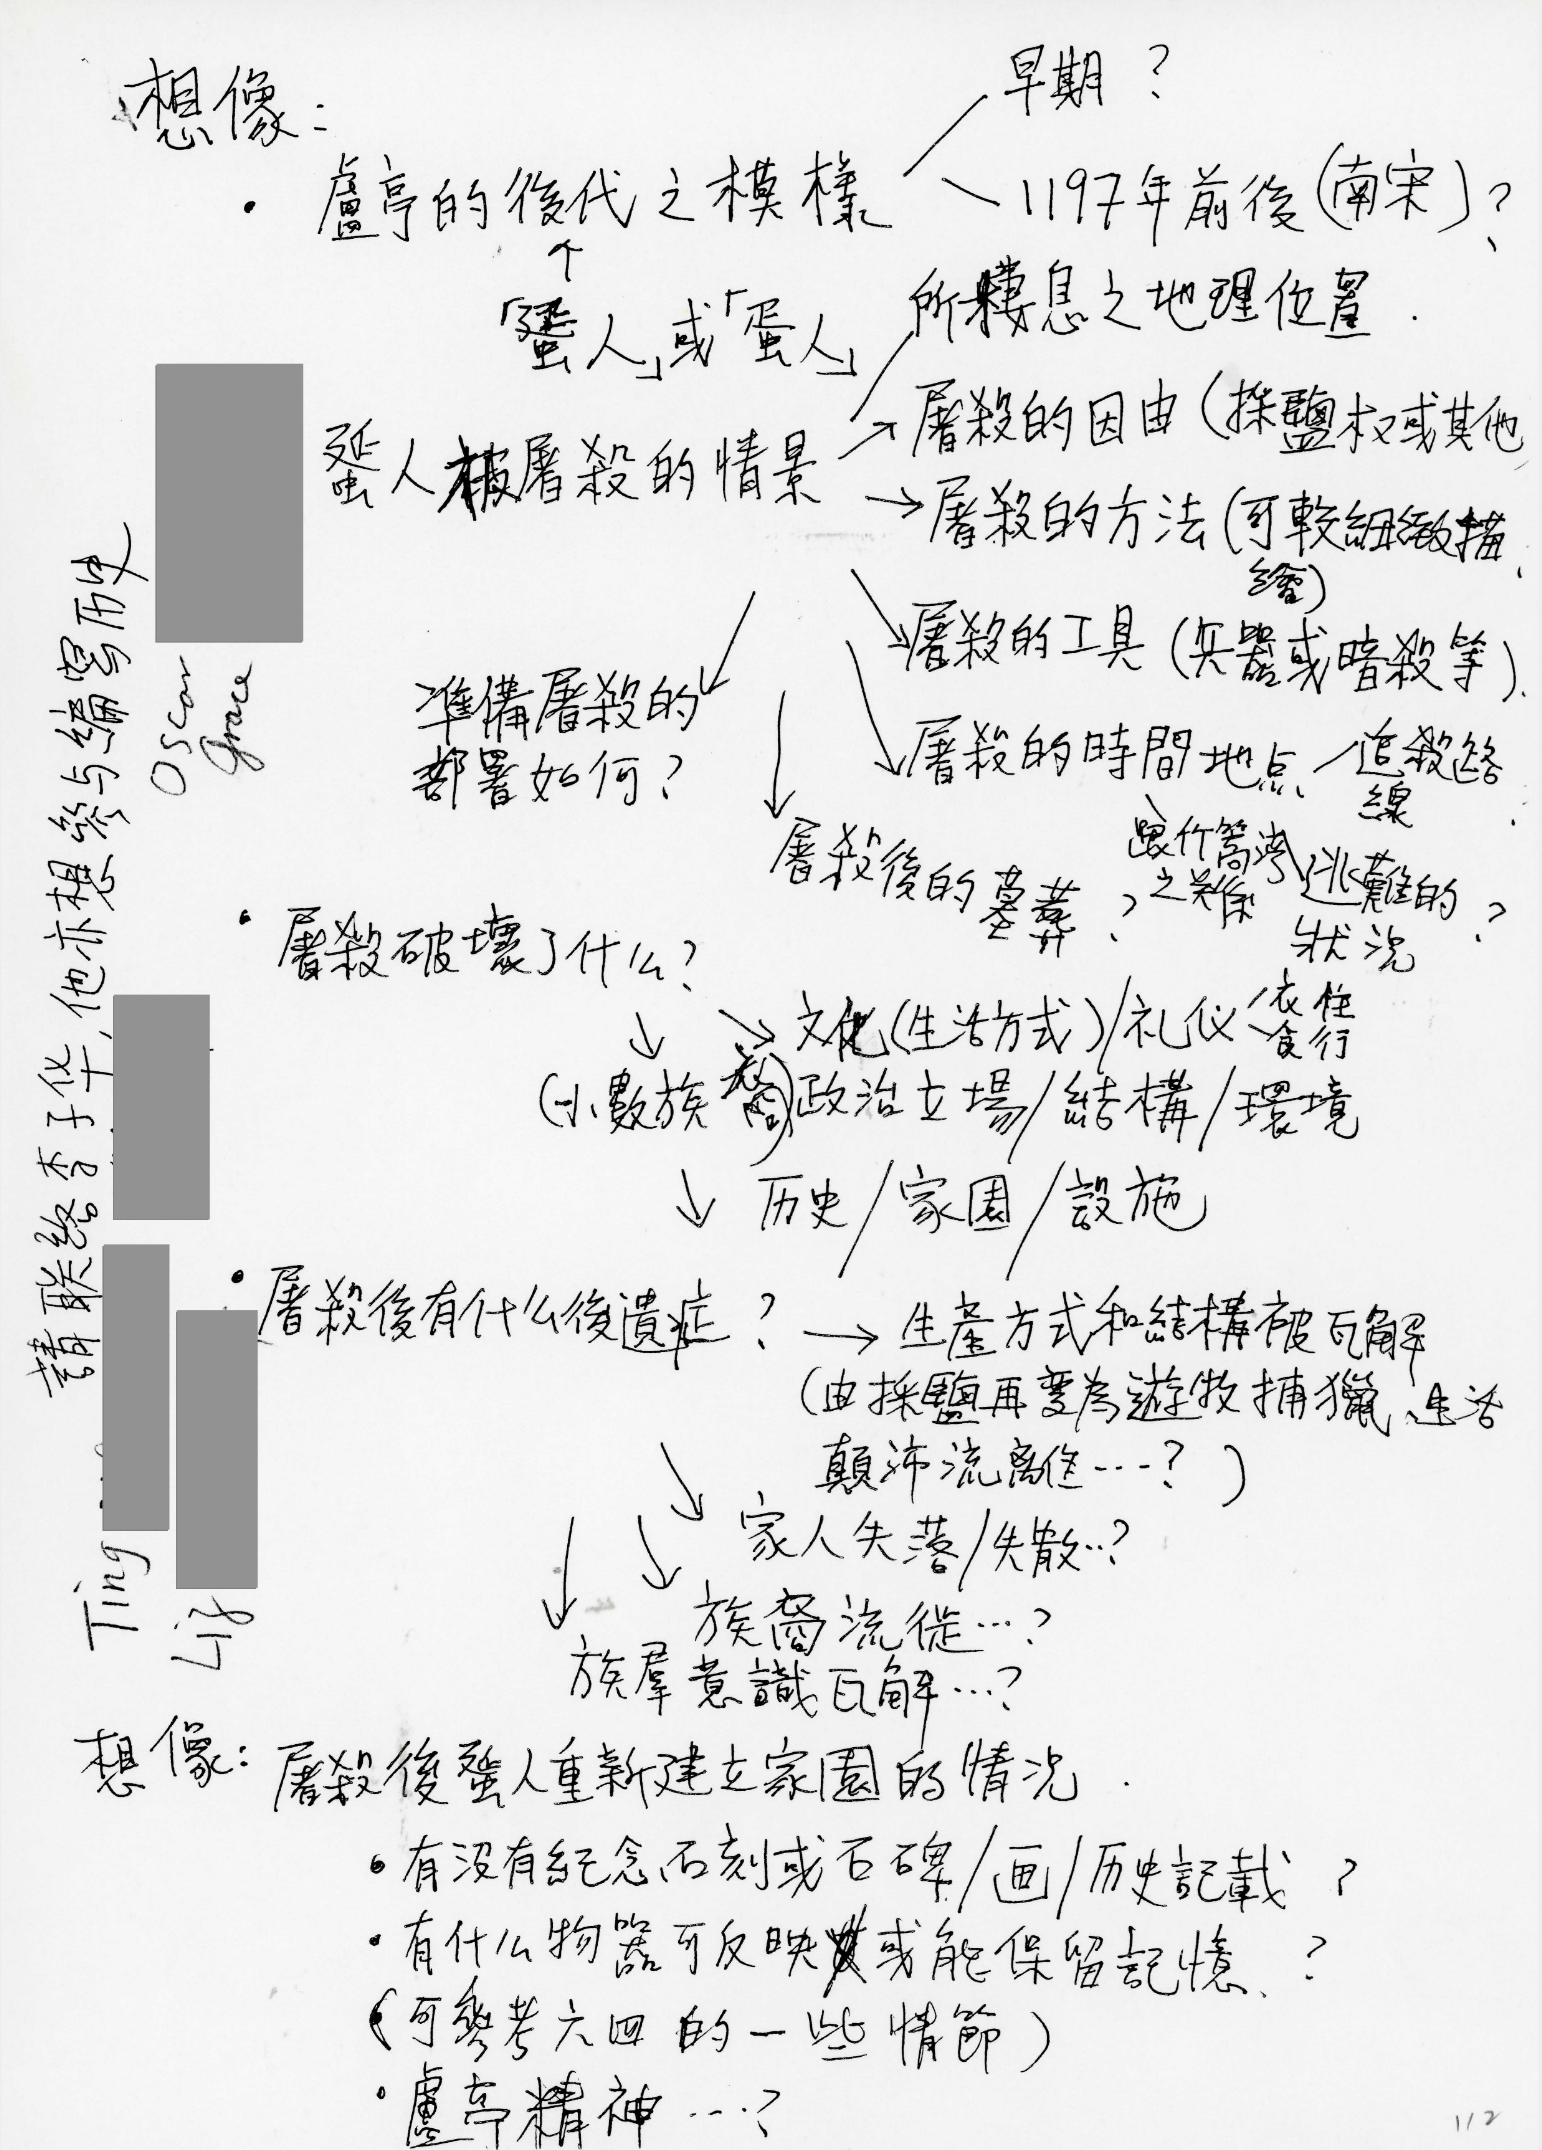 想像：
早期？
• 盧亭的後代之模樣
1197年前後（南宋）？
「蜑人」或「蛋人」
所棲息之地理位置．
蜑人被屠殺的情景
屠殺的因由（採鹽权或其他
屠殺的方法（可較細緻描
繪）
屠殺的工具（兵器或暗殺等）．
準備屠殺的
部署如何？
屠殺的時間地点
追殺路
線
跟竹篙灣
之关係
逃難的
狀況？
屠殺後的墓葬？
• 屠殺破壞了什么？
文化（生活方式）/礼仪
衣住
食行
（小數族裔）
政治立場/結構/環境
历史/家園/設施
• 屠殺後有什么後遺症？
生產方式和結構被瓦解
（由採鹽再變為遊牧捕獵、生活
顛沛流離…？）
家人失落/失散…？
族裔流徙…？
族羣意識瓦解…？
想像：屠殺後蜑人重新建立家園的情況．
• 有沒有紀念石刻或石碑/画/历史記載？
• 有什么物器可反映或能保留記憶、？
（可參考六四的一些情節）
• 盧亭精神…？
請联絡李子华，他亦想參与編寫历史
Oscar
Grace
Ting
Liz
112